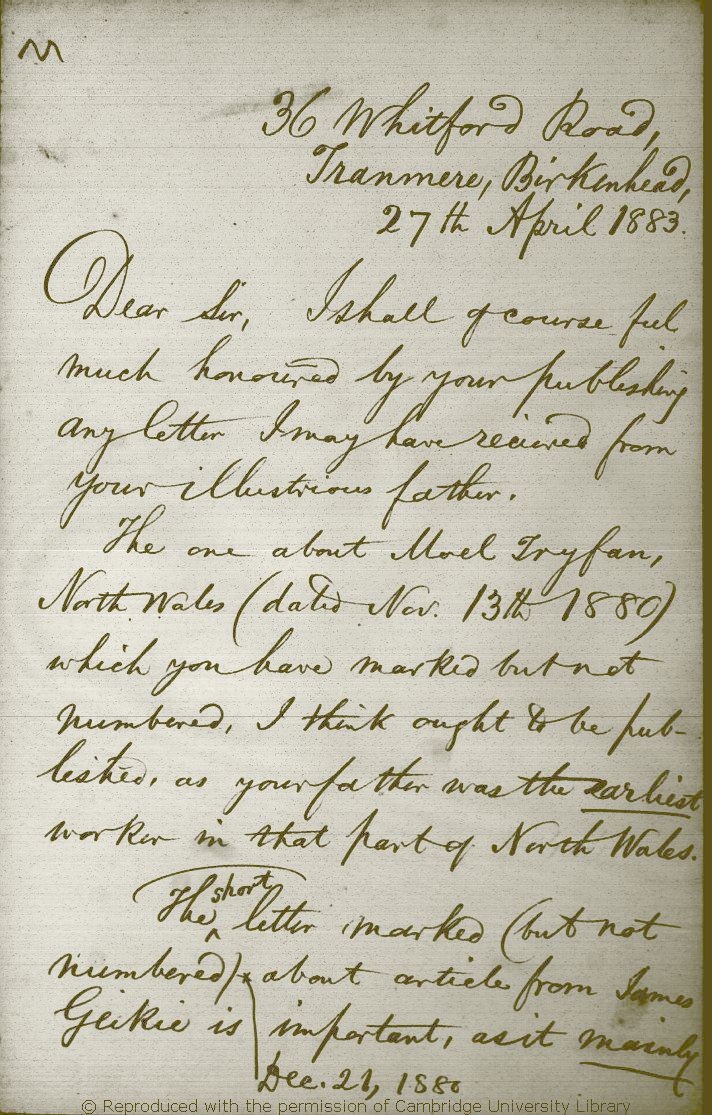 36 Whitford Road,
Tranmere, Birkenhead,
27th April 1883.
Dear Sir, I shall of course feel
much honoured by your publishing
any letter I may have recieved from
your illustrious father.
The one about Moel Tryfan,
North Wales (dated Nov. 13th 1880)
which you have marked but not
numbered, I think ought to be pub-
lished, as your father was the earliest
worker in that part of North Wales.
The short letter marked (but not
numbered) x about article from James
Geikie is important, as it mainly
Dec. 21, 1880
© Reproduced with the permission of Cambridge University Library